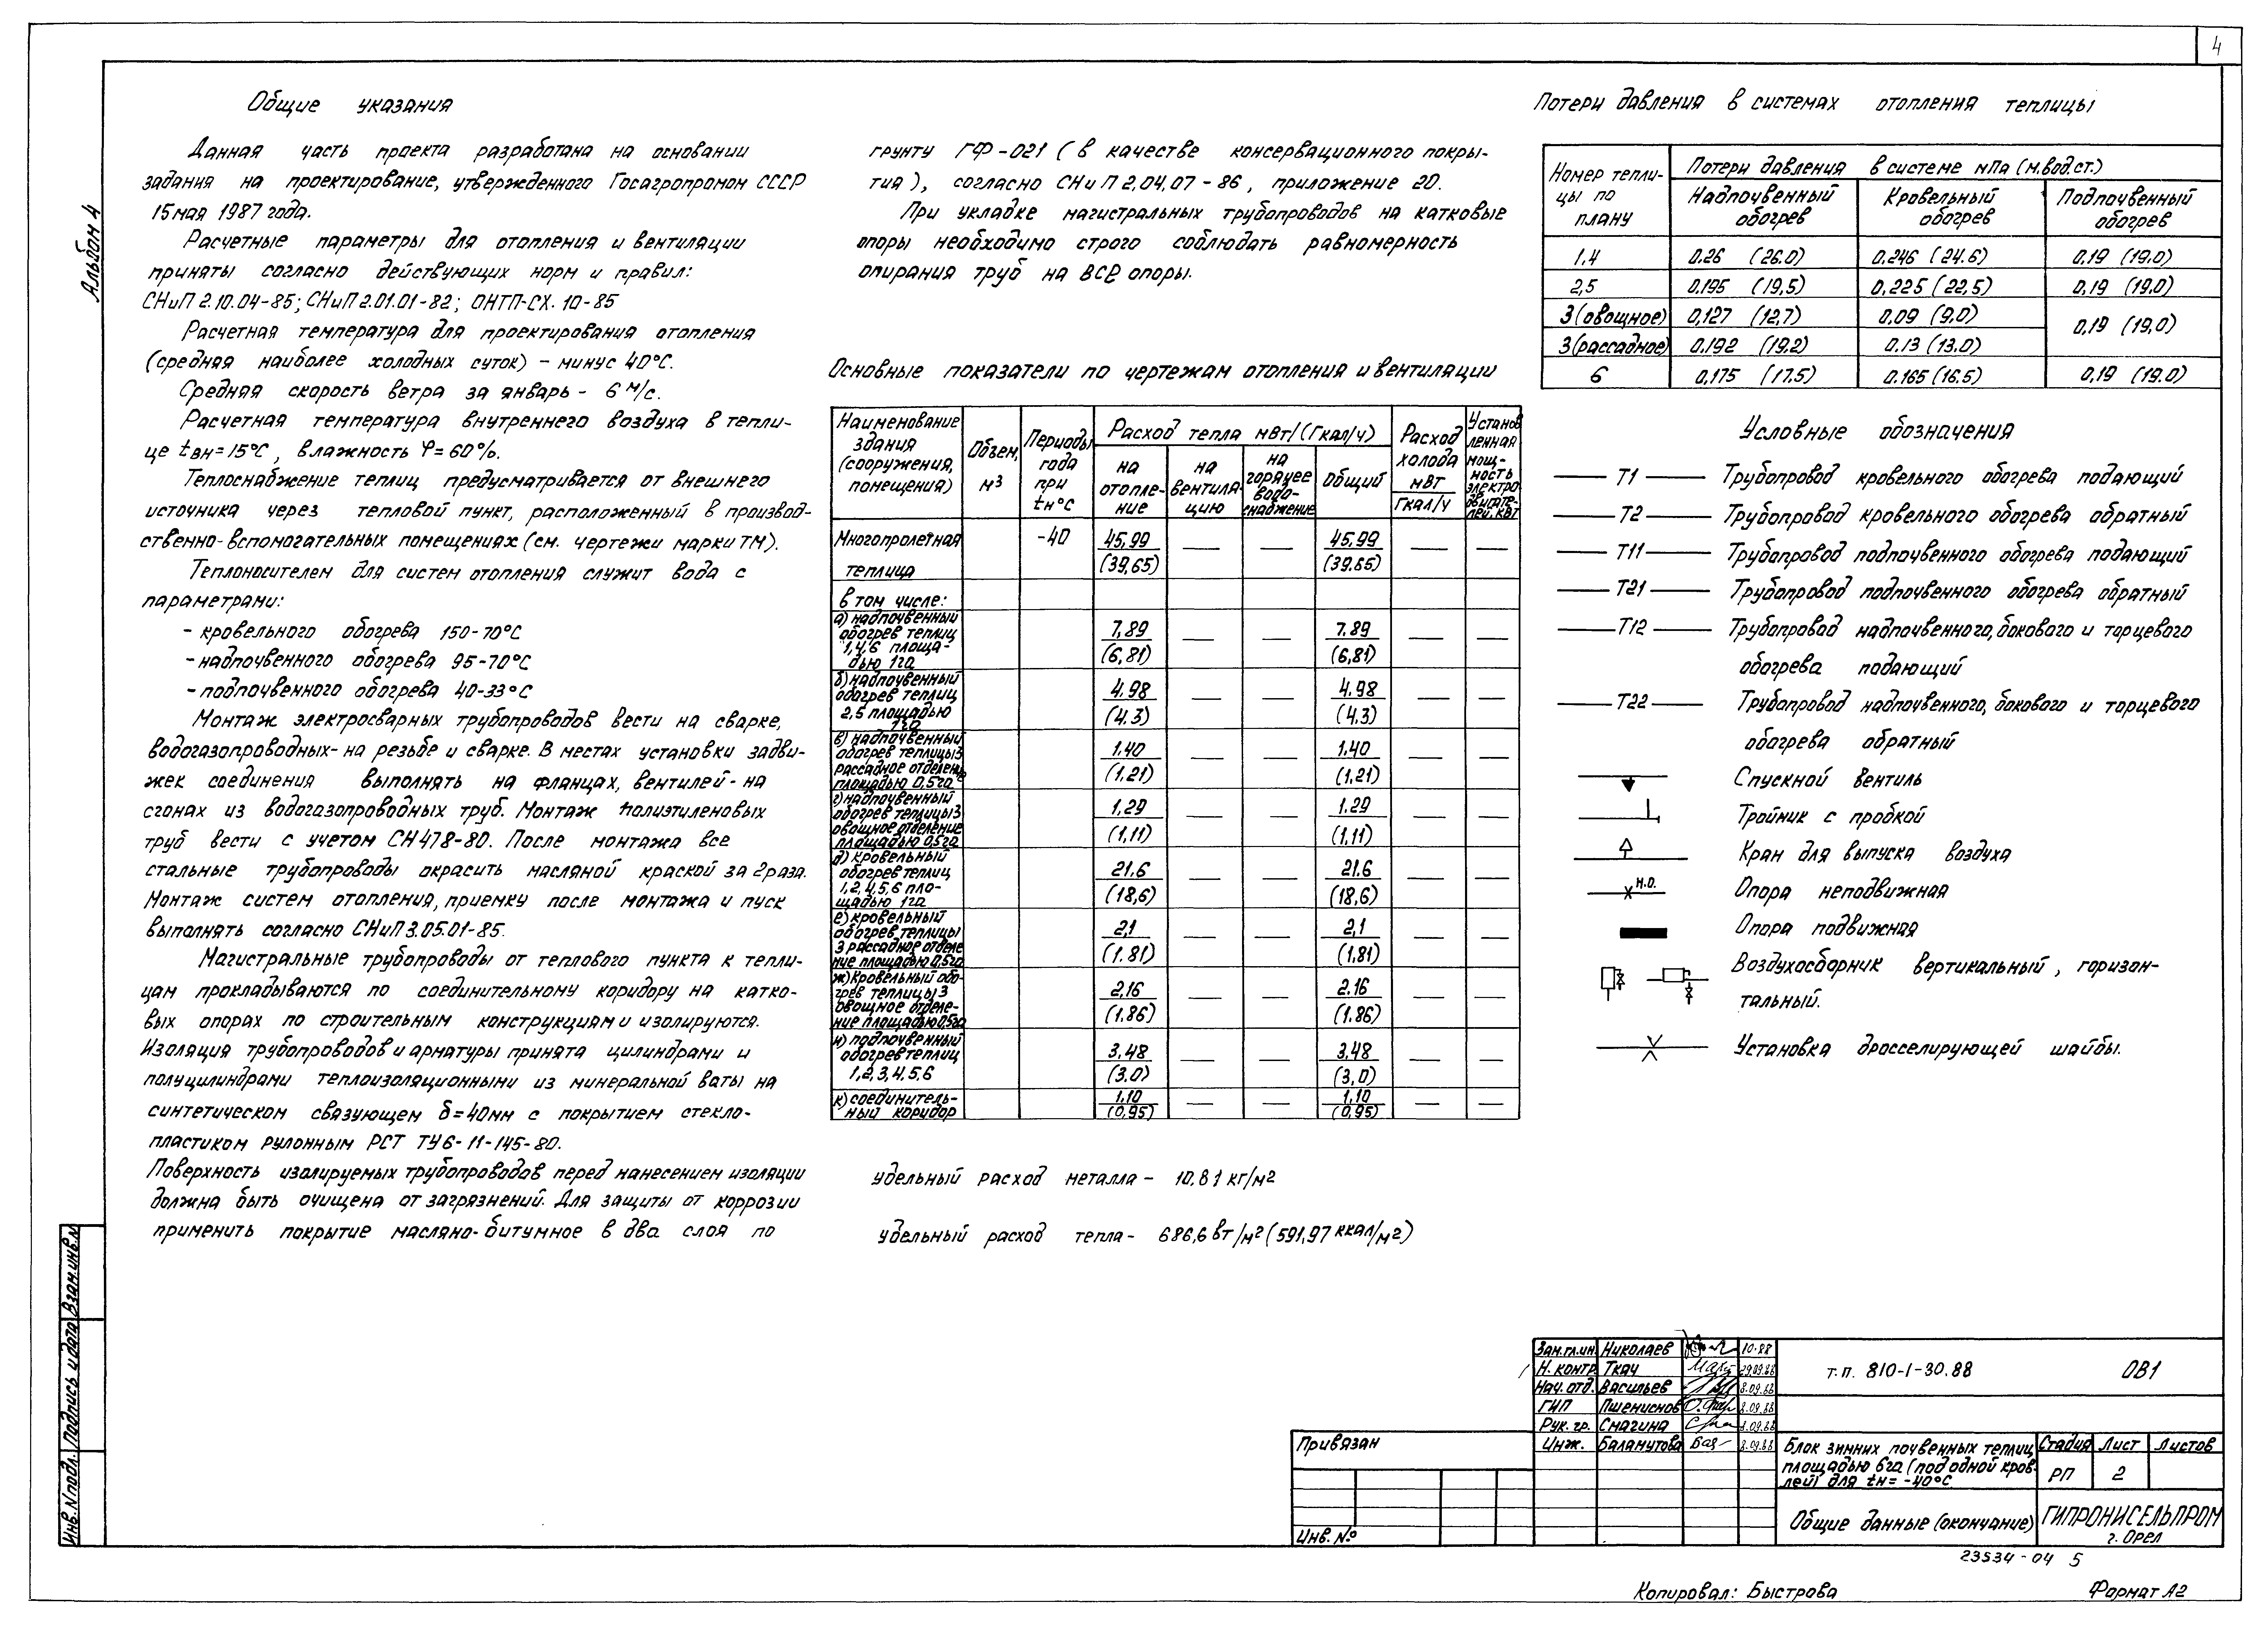 4
Альбом 4
Общие указания
Данная часть проекта разработана на основании
задания на проектирование, утвержденного Госагропромом СССР
15 мая 1987 года.
Расчетные параметры для отопления и вентиляции
приняты согласно действующих норм и правил:
СНиП 2.10.04-85; СНиП 2.01.01-82; ОНТП-СХ. 10-85
Расчетная температура для проектирования отопления
(средняя наиболее холодных суток) - минус 40°С.
Средняя скорость ветра за январь - 6 м/с.
Расчетная температура внутреннего воздуха в тепли-
це tвн=15°С, влажность φ=60%.
Теплоснабжение теплиц предусматривается от внешнего
источника через тепловой пункт, расположенный в производ-
ственно-вспомогательных помещениях (см. чертежи марки ТМ).
Теплоносителем для систем отопления служит вода с
параметрами:
- кровельного обогрева 150-70°С
- надпочвенного обогрева 95-70°С
- подпочвенного обогрева 40-33°С
Монтаж электросварных трубопроводов вести на сварке,
водогазопроводных- на резьбе и сварке. В местах установки задви-
жек соединения выполнять на фланцах, вентилей - на
сгонах из водогазопроводных труб. Монтаж полиэтиленовых
труб вести с учетом СН 478-80. После монтажа все
стальные трубопроводы окрасить масляной краской за 2 раза.
Монтаж систем отопления, приемку после монтажа и пуск
выполнять согласно СНиП 3.05.01-85.
Магистральные трубопроводы от теплового пункта к тепли-
цам прокладываются по соединительному коридору на катко-
вых опорах по строительным конструкциям и изолируются.
Изоляция трубопроводов и арматуры принята цилиндрами и
полуцилиндрами теплоизоляционными из минеральной ваты на
синтетическом связующем δ=40мм с покрытием стекло-
пластиком рулонным РСТ ТУ6-11-145-80.
Поверхность изолируемых трубопроводов перед нанесением изоляции
должна быть очищена от загрязнений. Для защиты от коррозии
применить покрытие масляно-битумное в два слоя по
грунту ГФ-021 (в качестве консервационного покры-
тия), согласно СНиП 2.04.07-86, приложение 20.
При укладке магистральных трубопроводов на катковые
опоры необходимо строго соблюдать равномерность
опирания труб на все опоры.
Основные показатели по чертежам отопления и вентиляции
Наименование здания (сооружения, помещения) Объем, м3 Периоды года при tн°С Расход тепла мВт/(Гкал/ч) Расход холода мВт Гкал/ч Установленная мощ-ность электро-двигате-лей, кВт
на отопле-ние на вентиля-цию на горячее водо-снабжение общий
Многопролетная теплица -40 45,99 (39,65) — — 45.99 (39.65) — —
в том числе:
а) надпочвенный обогрев теплиц 1,4,6 площа-дью 1га 7,89 (6,81) — — 7.89 (6,81) — —
б) надпочвенный обогрев теплиц 2,5 площадью 1га 4.98 (4.3) — — 4.98 (4.3) — —
в) надпочвенный обогрев теплицы 3 рассадное отделение площадью 0,5га 1.40 (1.21) — — 1.40 (1,21) — —
г) надпочвенный обогрев теплицы 3 овощное отделение площадью 0,5га 1,29 (1,11) — — 1.29 (1,11) — —
д) кровельный обогрев теплиц 1,2,4,5,6 пло-щадью 1га 21.6 (18,6) — — 21.6 (18,6) — —
е) кровельный обогрев теплицы 3 рассадное отделе ние площадью 0,5га 2,1 (1.81) — — 2,1 (1,81) — —
ж) кровельный обо-грев теплицы 3 овощное отделе-ние площадью 0,5га 2,16 (1.86) — — 2.16 (1.86) — —
и) подпочвенный обогрев теплиц 1,2,3,4,5,6 3,48 (3.0) — — 3,48 (3,0) — —
к) соединитель-ный коридор 1,10 (0,95) — — 1,10 (0,95) — —
удельный расход металла - 10.81 кг/м2
удельный расход тепла - 686,6 вт/м2 (591,97 ккал/м2)
Потери давления в системах отопления теплицы
Номер тепли-цы по плану Потери давления в системе мПа (м.вод.ст.)
Надпочвенный обогрев Кровельный обогрев Подпочвенный обогрев
1,4 0.26 (26.0) 0.246 (24.6) 0.19 (19.0)
2,5 0.195 (19,5) 0,225 (22,5) 0,19 (19.0)
3 (овощное) 0,127 (12,7) 0.09 (9.0) 0,19 (19,0)
3 (рассадное) 0.192 (19.2) 0.13 (13.0)
6 0,175 (17.5) 0.165 (16.5) 0,19 (19.0)
Условные обозначения
Т1 Трубопровод кровельного обогрева подающий
Т2 Трубопровод кровельного обогрева обратный
Т11 Трубопровод подпочвенного обогрева подающий
Т21 Трубопровод подпочвенного обогрева обратный
Т12 Трубопровод надпочвенного, бокового и торцевого
обогрева подающий
Т22 Трубопровод надпочвенного, бокового и торцевого
обогрева обратный
Спускной вентиль
Тройник с пробкой
Кран для выпуска воздуха
Н.О. Опора неподвижная
Опора подвижная
Воздухосборник вертикальный, горизон-
тальный.
Установка дросселирующей шайбы.
Зам.гл.ин. Николаев 10.88
Н. контр Ткач 29.09.88
Нач. отд. Васильев 8.09.88
ГИП Пшениснов 8.09.88
Рук. гр. Смагина 8.09.88
Инж. Баламутова 8.09.88
т.п. 810-1-30.88 ОВ1
Блок зимних почвенных теплиц
площадью 6га (под одной кров-
лей) для tн= -40°С
Стадия Лист Листов
РП 2
Общие данные (окончание)
ГИПРОНИСЕЛЬПРОМ
г. Орел
Привязан
Инв. №
23534-04 5
Копировал: Быстрова Формат А2
Инв. N подл. Подпись и дата Взам. инв. N